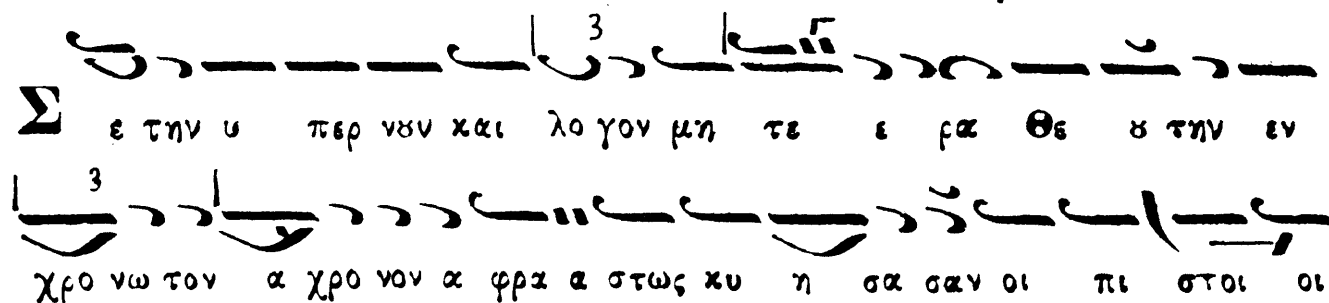 Σ ε την υ περ νȣν και λο γον μη τε ε ρα Θε ȣ την εν
χρο νω τον α χρο νον α φρα α στως κυ η σα σαν οι πι στοι οι